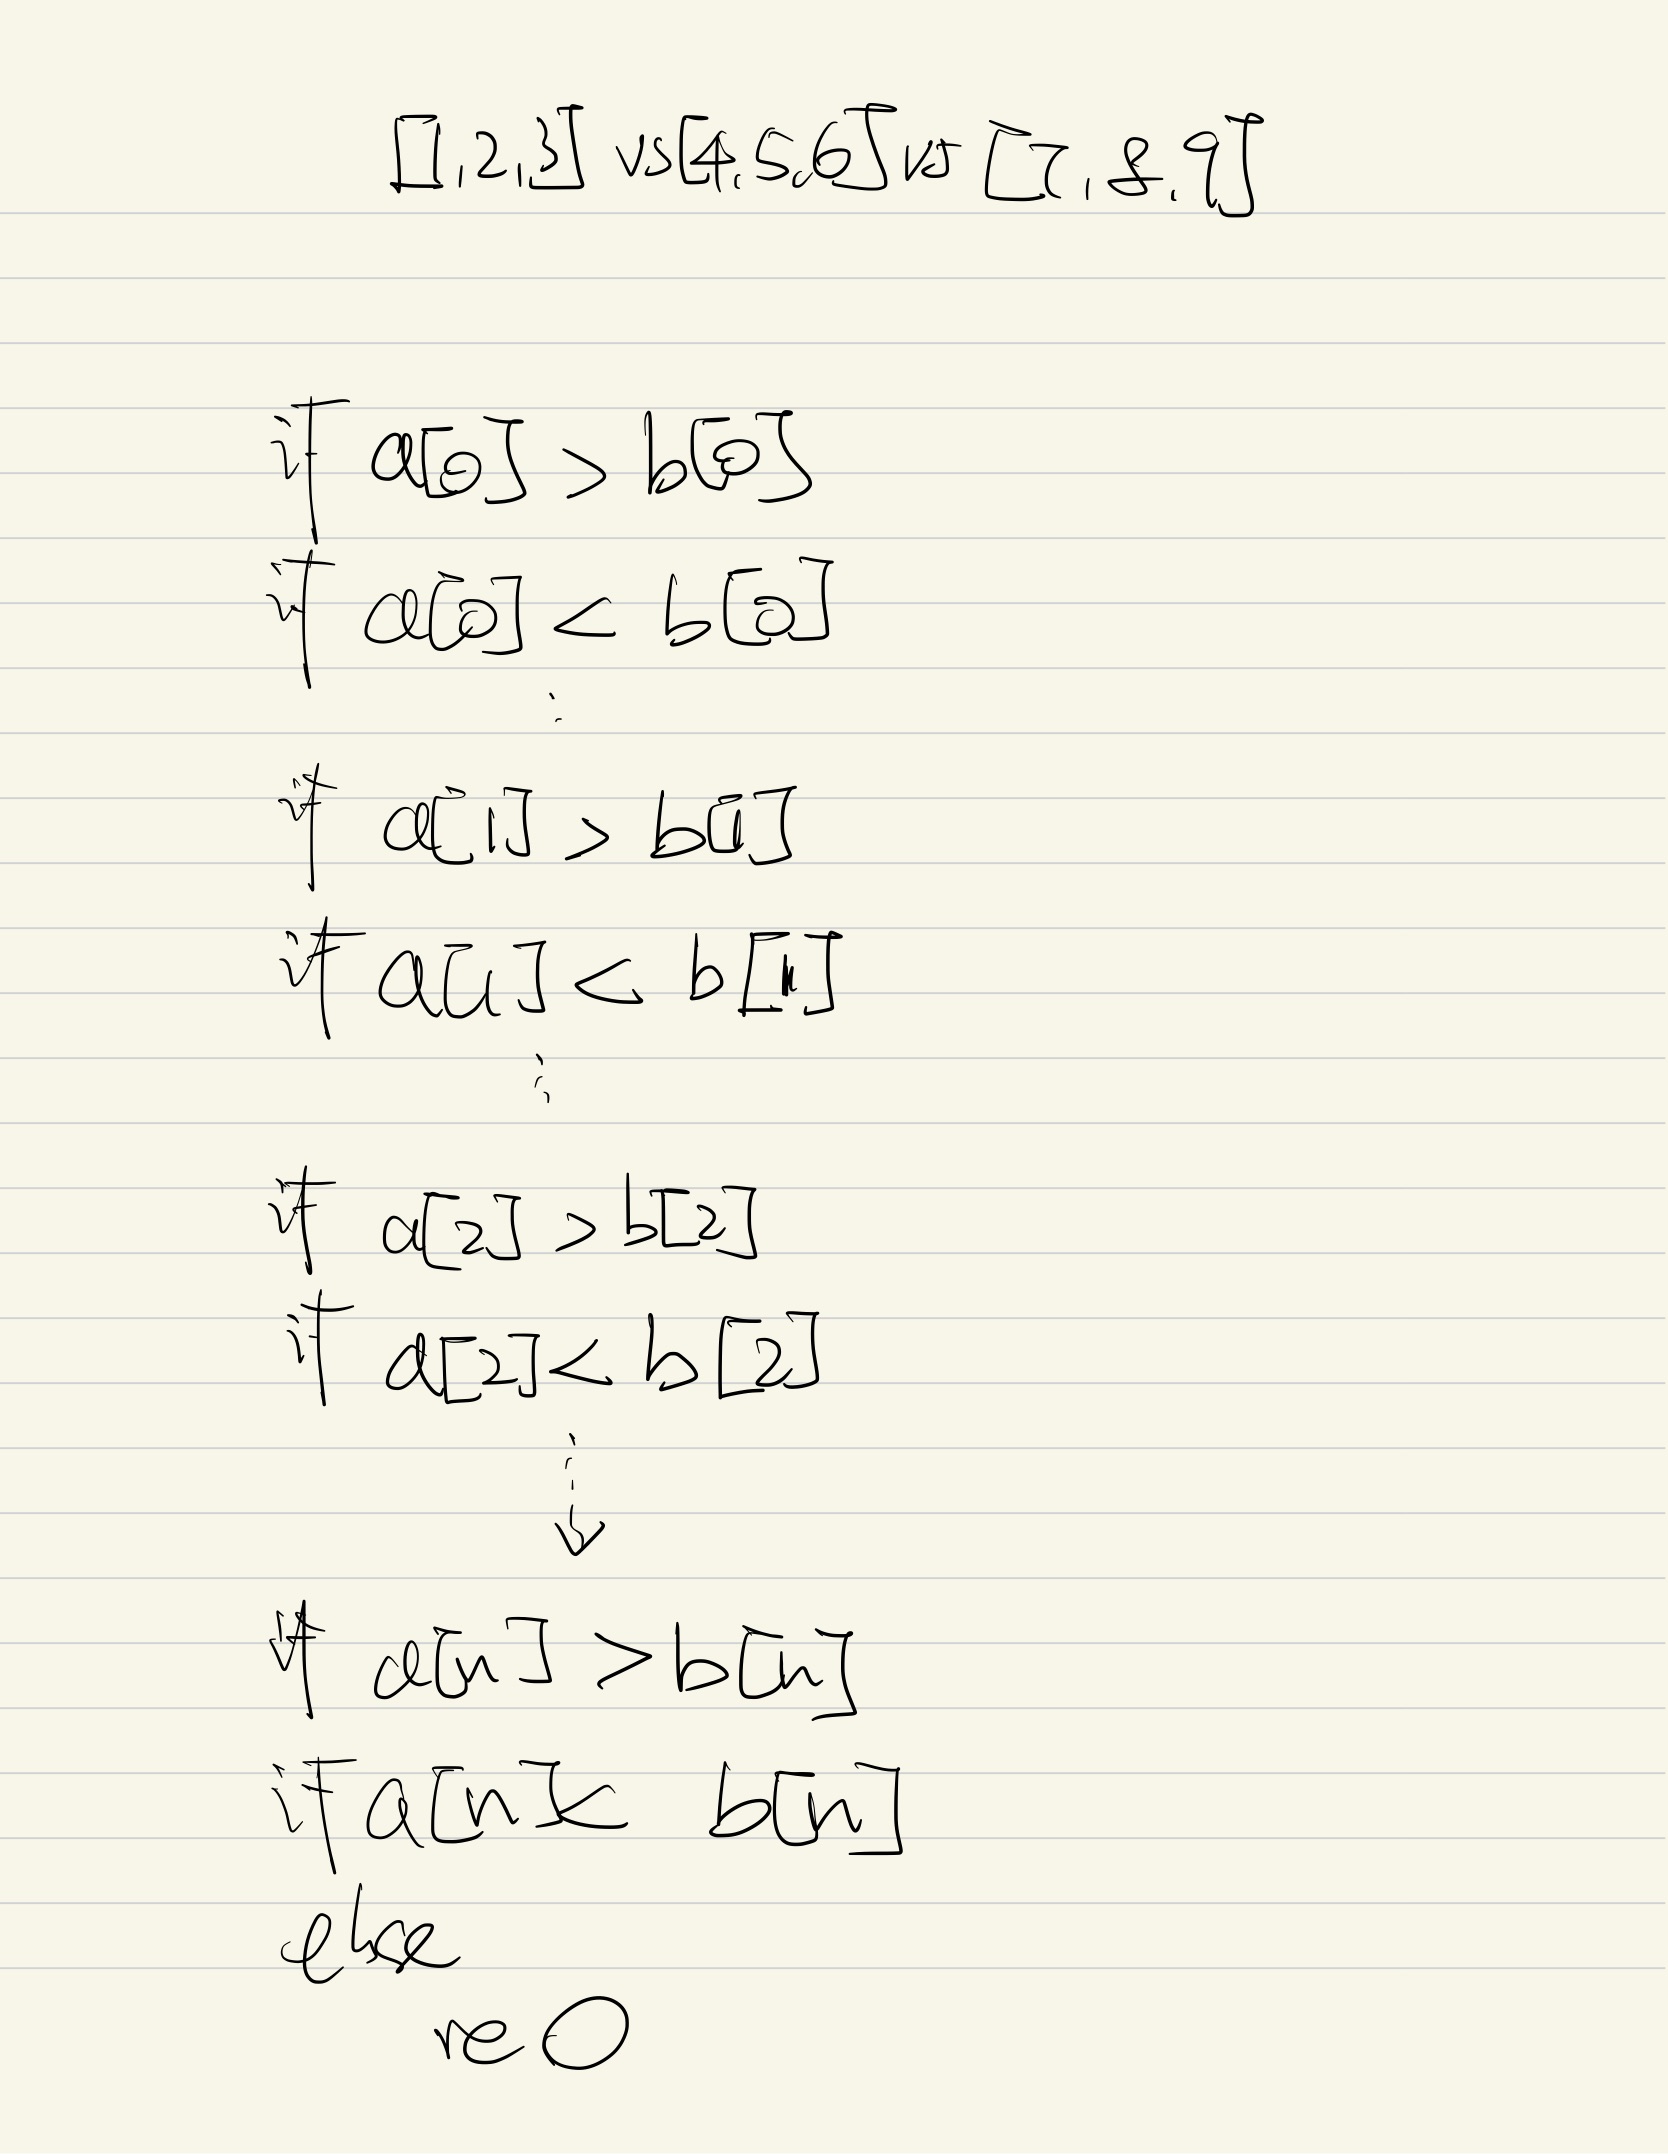 [1,2,3] vs [4,5,6] vs [7,8,9]
if a[0] > b[0]
if a[0] < b[0]
if a[1] > b[1]
if a[1] < b[1]
if a[2] > b[2]
if a[2] < b[2]
if a[n] > b[n]
if a[n] < b[n]
else
re 0